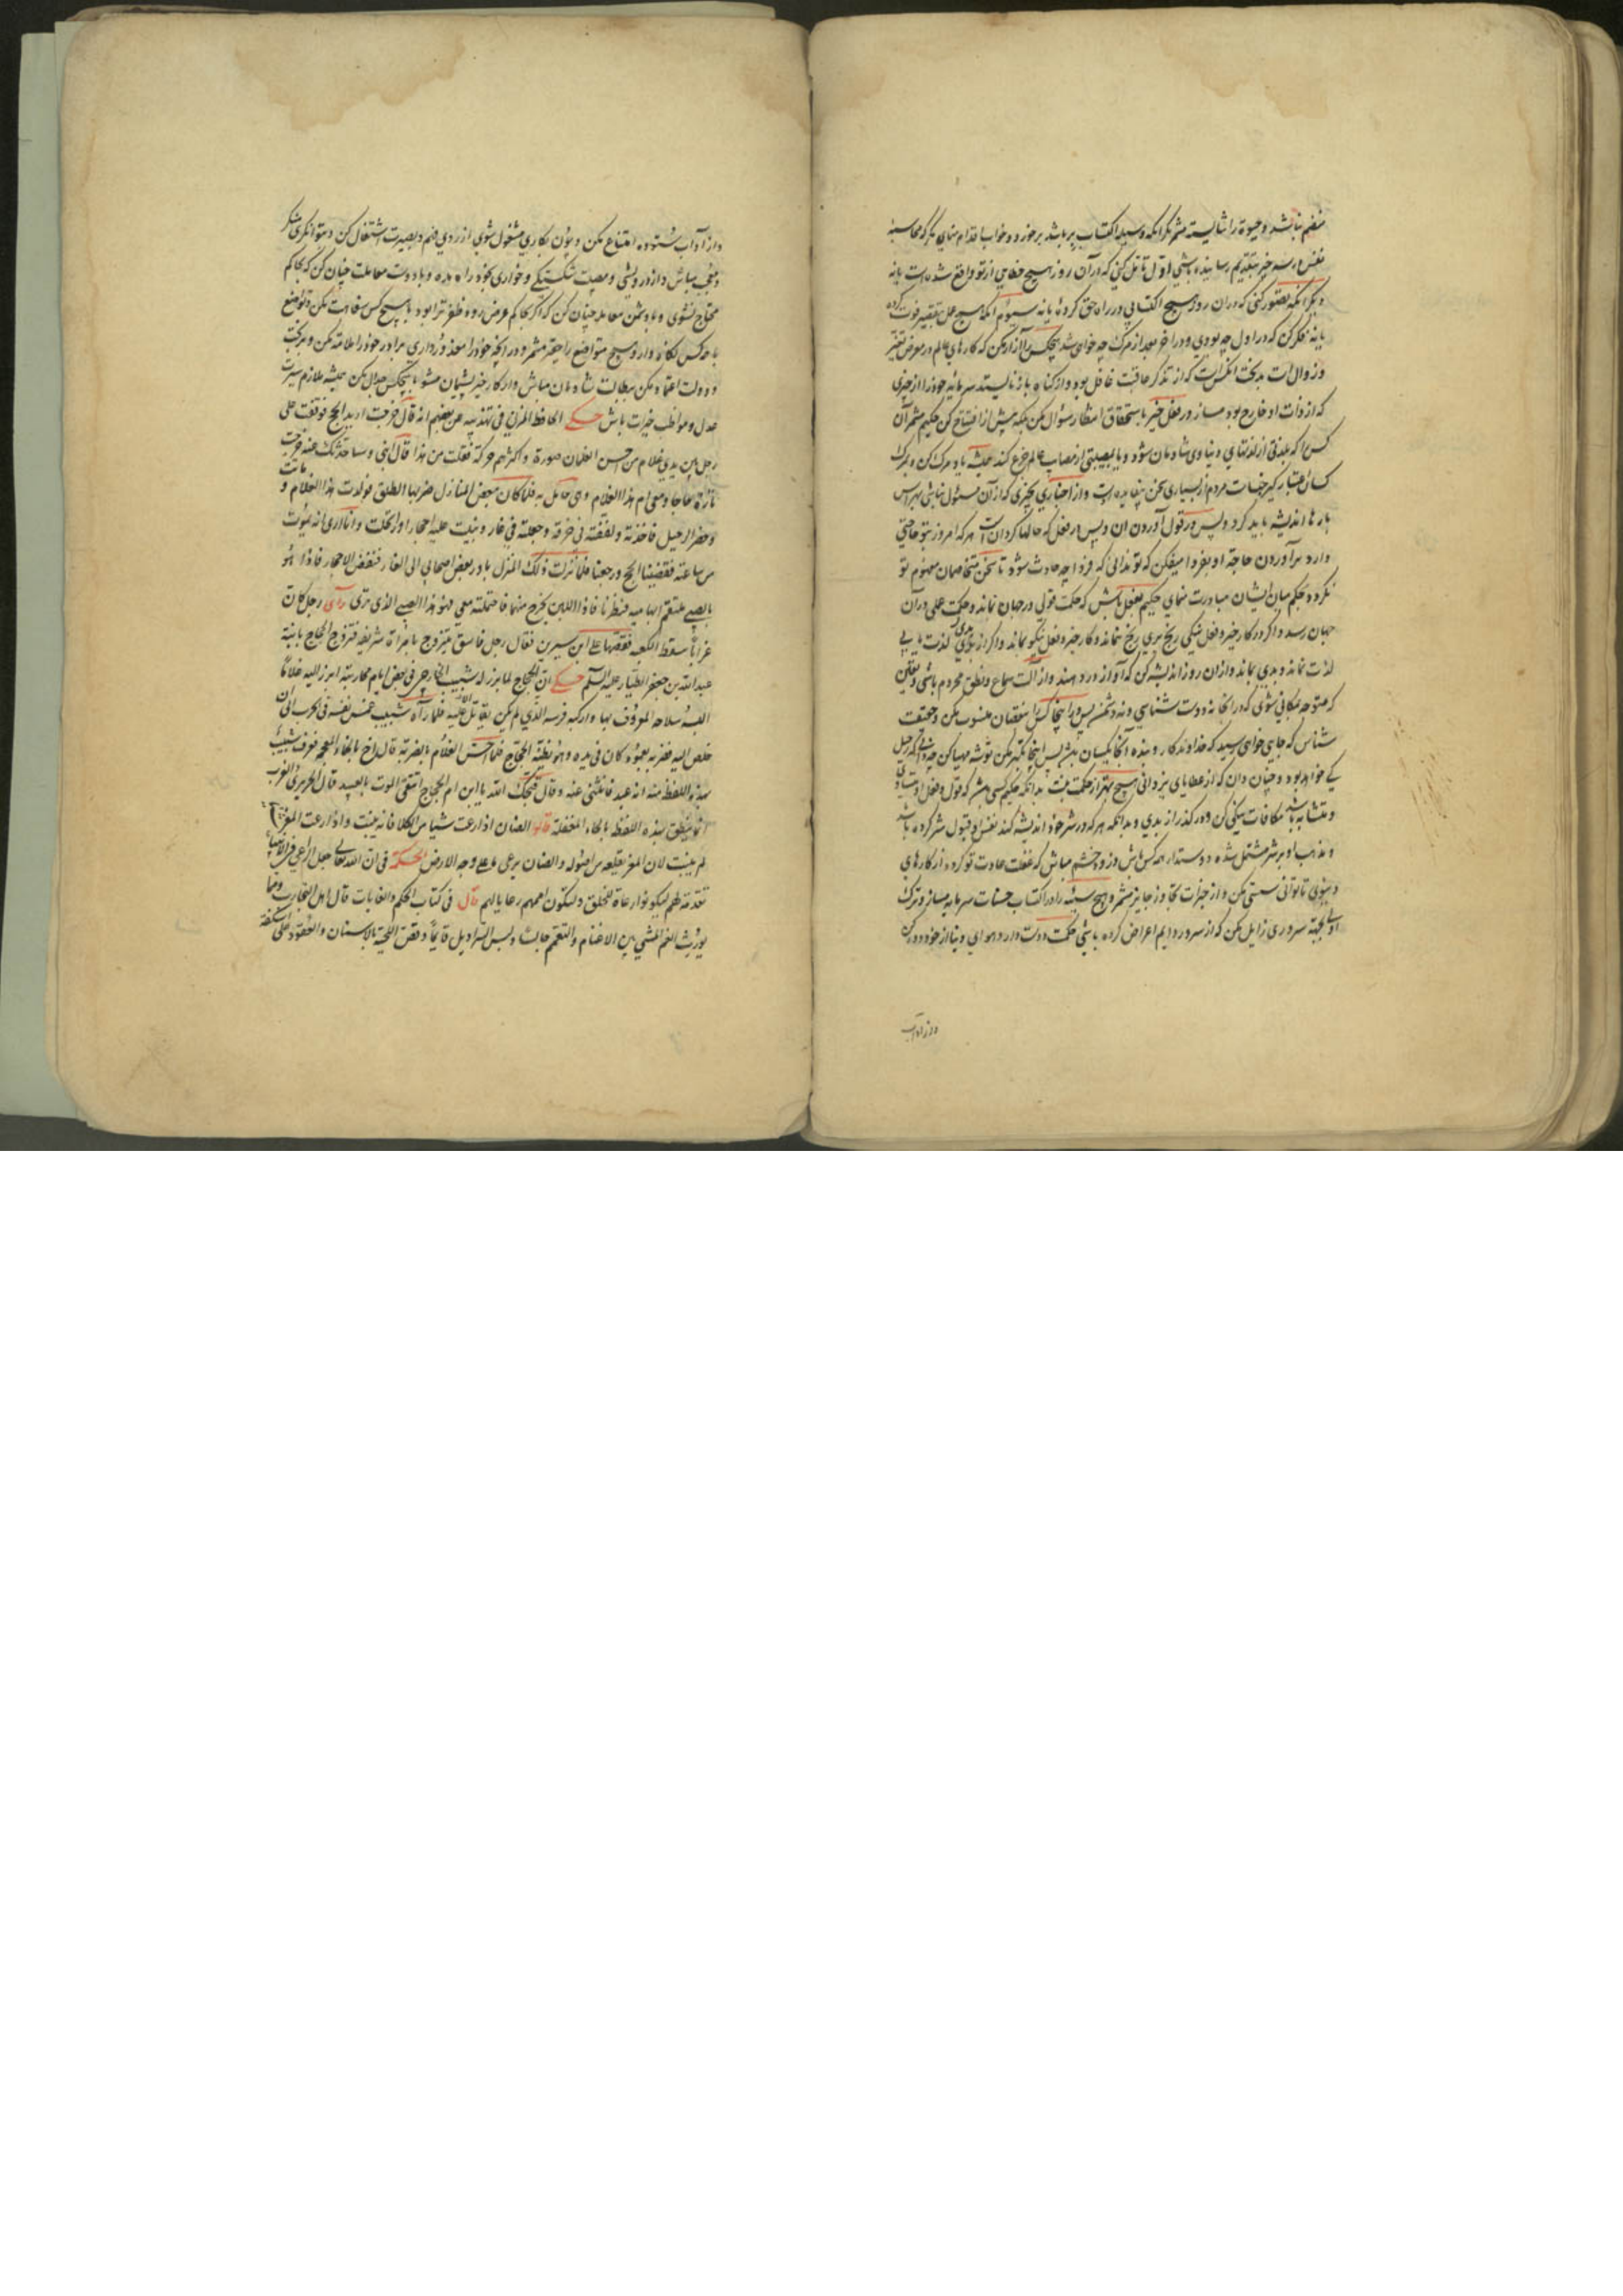 منضم نباشد وحیوة را شایسته مشمر مگر آنکه وسیله اکتساب بر باشد بر خور و خواب اقدام منمای مگر که محاسبه
نفس به سه چیز بتقدیم رسانیده باشی اول تامل کنی که در آن روز هیچ خطایی از تو واقع شده است یا نه
دیگر آنکه تصور کنی که در آن روز هیچ اکتسابی در راه حق کرده یا نه سیوم آنکه هیچ عمل بتقصیر فوت کرده
یا نه فکر کن که در اول چه بودی و در آخر بعد از مرگ چه خواهی شد هیچکس را آزار مکن که کارهای عالم در معرض تغیر
و زوال است بدبخت آنکس است که از تذکر عاقبت غافل بود و از گناه باز نایستد سرمایه خود را از چیزی
که از ذات او خارج بود مساز در فعل خیر با مستحقان انتظار سؤال مکن بلکه پیش از افتتاح کن حکیم مشمر آن
کس را که بلذتی از لذتهای دنیاوی شادمان شود و یا بمصیبتی از مصایب عالم جزع کند همیشه یاد مرگ کن و بمردگان
اعتبار گیر خساست مردم از بسیاری سخن بیفایده است و از اخباری بچیزی که از آن مسئول نباشی بپرس
بارها اندیشه باید کرد و پس در قول آوردن آن و پس در فعل که حالها گردان است هر که امروز بتو حاجتی
دارد برآوردن حاجت او بفردا میفکن که تو ندانی که فردا چه حادث شود تا سخن متخاصمان مفهوم تو
نگردد بحکم میان ایشان مبادرت منمای حکیم بفعل باش که حکمت قولی در جهان نماند و حکمت عملی در آن
جهان رسد و اگر در کار خیر و فعل نیکی رنج بری رنج نماند و کار خیر و فعل نیکو بماند و اگر از بدی لذت یابی
لذت نماند و بدی بماند و از آن روز اندیشه کن که آواز در دهند و از آلت سماع و نطق محروم باشی و یقین
که متوجه مکانی شوی که در آنجا نه دوست شناسی و نه دشمن پس در اینجا کس را بنقصان منسوب مکن و حقیقت
شناس که جایی خواهی رسید که خداوندگار و بنده آنجا یکسان باشند پس اینجا تکبر مکن توشه مهیا کن چه دانی که رحیل
کی خواهد بود و چنان دان که از عطایای یزدانی هیچ بهتر از حکمت نیست بدانکه حکیم کسی باشد که قول و فعل او متساوی
و متشابه باشد مکافات نیکی کن و در گذر از بدی و بدانکه هر که در شر خود اندیشه کند نفس او قبول شر کرده باشد
و مذهب او بر شر مشتمل شده دوستدار همه کس باش و زود خشم مباش که غفلت عادت تو گردد از کارهای
دنیوی تا توانی سستی مکن و از خیرات تجاوز جایز مشمر و هیچ سیئه را در اکتساب حسنات سرمایه مساز و ترک
اولی بجهة سروری زایل مکن که از سرور دایم اعراض کرده باشی حکمت دوست دار و هوای دنیا از خود دور کن
واز آداب
واز آداب ستوده امتناع مکن و چون بکاری مشغول شوی از روی فهم و بصیرت اشتغال کن و بتوانگری متکبر
و معجب مباش و از درویشی و مصیبت شکستگی و خواری بخود راه مده و با دوست معاملت چنان کن که بحاکم
محتاج نشوی و با دشمن معامله چنان کن که اگر بحاکم عرض رود ظفر ترا بود با هیچ کس سفاهت مکن و تواضع
با همه کس نگاه دار و هیچ متواضع را حقیر مشمر و در آنچه خود را معذور داری برادر خود را ملامت مکن و بر بخت
و دولت اعتماد مکن ببطالت شادمان مباش و از کار خیر پشیمان مشو با هیچکس جدال مکن همیشه ملازم سیرت
عدل و مواظب خیرات باش حكى الحافظ المزی فی تهذیبه عن بعضهم انه قال خرجت ارید الحج فوقفت علی
رجل بین یدیه غلام من احسن الغلمان صورة و اکثرهم حرکة فقلت من هذا قال ابنی و ساحدثک عنه خرجت
مرة حاجا ومعی ام هذا الغلام وهی حامل به فلما کان بعض المنازل ضربها الطلق فولدت هذا الغلام و ماتت
وحضر الرحیل فاخذته ولففته فی خرقة وجعلته فی غار وبنیت علیه احجارا وارتحلت وانا اری انه یموت
من ساعته فقضینا الحج ورجعنا فلما نزلت ذلک المنزل بادر بعض اصحابی الی الغار فنقض الاحجار فاذا هو
بالصبی ملتقم ابهامیه فنظرنا فاذا اللبن یخرج منهما فاحتملته معی فهو هذا الصبی الذی تری رای رجل کان
غرابا سقط الکعبه فقصها علی ابن سیرین فقال رجل فاسق یتزوج بامراة شریفة فتزوج الحجاج بابنة
عبدالله بن جعفر الطیار علیه السلم حکی ان الحجاج لما برز له شبیب الخارجی فی بعض ایام محاربته ابرز الیه غلاما
البسه سلاحه المعروف بها وارکبه فرسه الذی لم یکن یقاتل الا علیه فلما رآه شبیب غمس نفسه فی الحرب الی ان
خلص الیه فضربه بعمود کان فی یده وهو یظنه الحجاج فلما احس الغلام بالضربة قال اخ بالخاء المعجمة فعرف شبیب
بهذه اللفظة منه انه عبد فانثنی عنه وقال قبحک الله یا ابن ام الحجاج اتتقی الموت بالعبید قال الحریری والعرب
انما ینطق بهذه اللفظة بالحاء المغفلة قالو الضان اذا رعت شیا من الکلا فانه ینبت واذا رعت المعز
لم ینبت لان المعز یقلعه من اصوله والضان یرعی ما علی وجه الارض الحکمة فی ان الله تعالی جعل الرعی فی الانبیا
تقدمة لهم لیکونوا رعاة للخلق ولتکون اممهم رعایا لهم قال فی کتاب الحکم والغایات قال اهل التجارب ومما
یورث الغم المشی بین الاغنام والتعمم جالسا ولبس السراویل قایما وقص اللحیة بالاسنان والقعود علی اسکفة